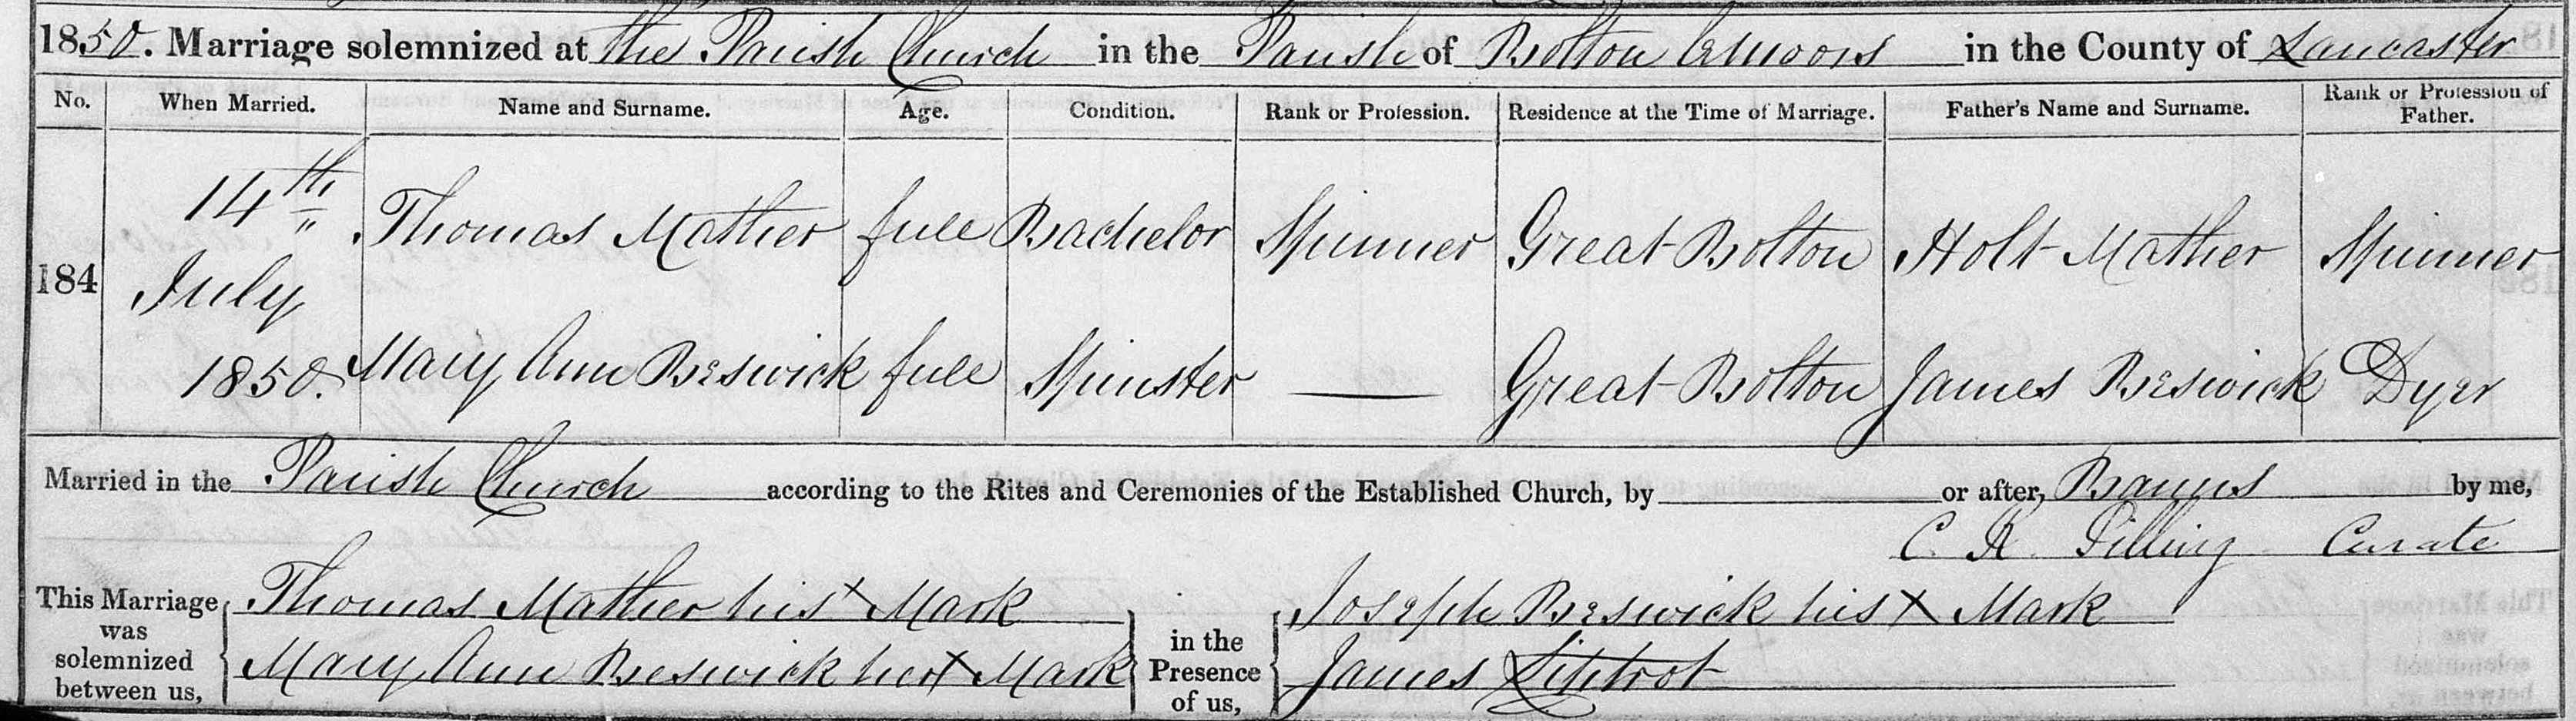 1850. Marriage solemnized at the Parish Church in the Parish of Bolton le Moors in the County of Lancaster
No. When Married. Name and Surname. Age. Condition. Rank or Profession. Residence at the Time of Marriage. Father's Name and Surname. Rank or Profession of Father.
184 14th July 1850. Thomas Mather full Bachelor Spinner Great Bolton Holt Mather Spinner
Mary Ann Beswick full Spinster — Great Bolton James Beswick Dyer
Married in the Parish Church according to the Rites and Ceremonies of the Established Church, by or after, Banns by me,
C. R. Pilling Curate
This Marriage was solemnized between us, Thomas Mather his X Mark
Mary Ann Beswick her X Mark
in the Presence of us, Joseph Beswick his X Mark
James Liptrot